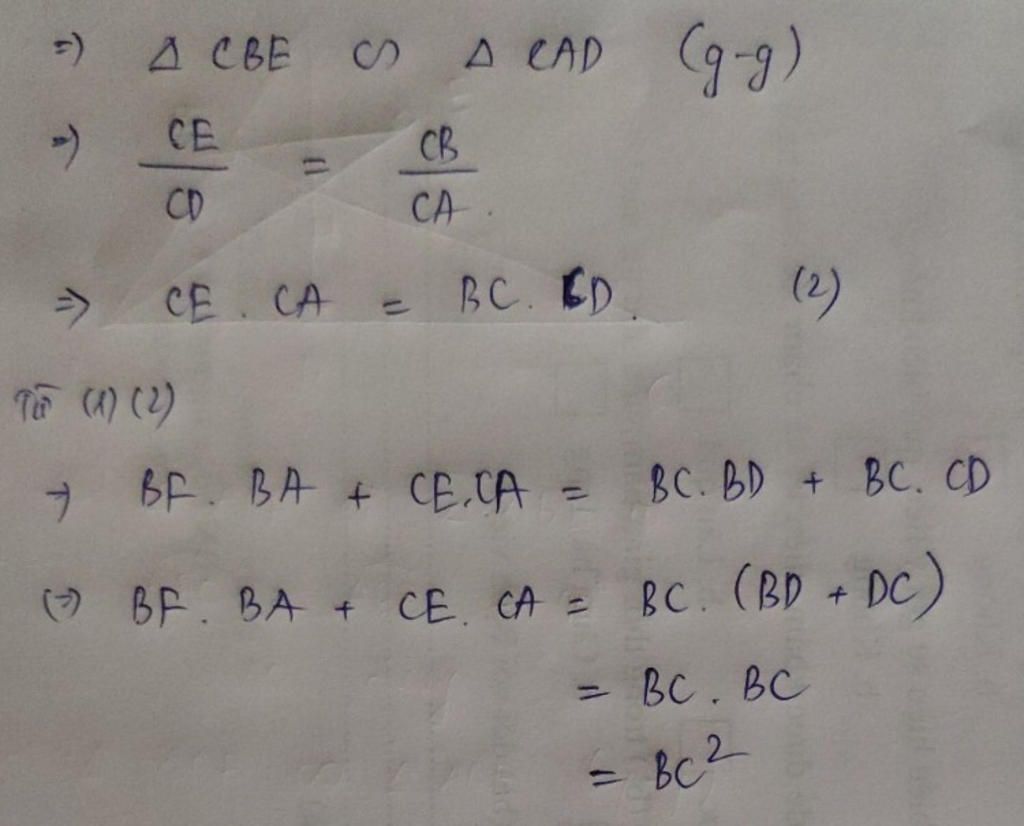 => Δ CBE ∽ Δ CAD (g-g)
=> CE/CD = CB/CA.
=> CE . CA = BC . CD. (2)
Từ (1) (2)
→ BF . BA + CE.CA = BC. BD + BC. CD
(=) BF . BA + CE. CA = BC. (BD + DC)
= BC . BC
= BC²